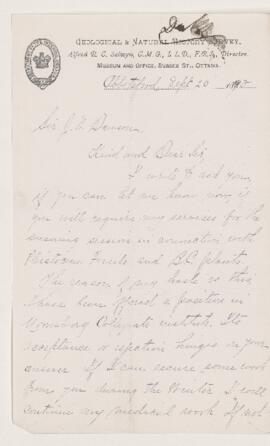 GEOLOGICAL & NATURAL HISTORY SURVEY.
Alfred R. C. Selwyn, C.M.G., L.L.D., F.R.S., Director.
MUSEUM AND OFFICE, SUSSEX ST., OTTAWA.
Abbotsford, Sept 20 1892
Sir J. W. Dawson,
Kind and Dear Sir,
I write to ask you,
if you can let me know now, if
you will require my services for the
ensuing session in connection with
Pleistocene Fossils and B.C. plants.
The reason of my haste is this
I have been offered a position in
Collegiate institute. Its
acceptance or rejection hinges on your
answer. If I can secure some work
from you during the Winter I will
continue my medical work. If not